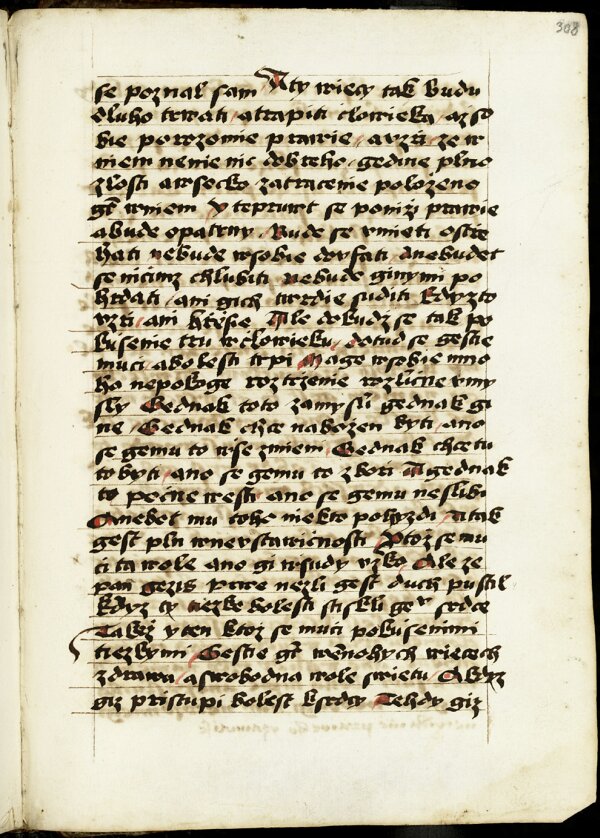 308
se poznal sam Aty wiecy tak budu
dluho trwati atrapiti clowieka azso
bie porozomie prawie auzrí ze w
niem nenie nic dobreho gedine plno
zlosti awsecko zatracenie polozeno
gt wniem Y teprwt se poniži prawie
abude opatrny Bude se vmieti ostrie
hati nebude wsobie dovfati anebudet
se nicimz chlubiti nebude ginymi po
hrdati ani gich twrdie suditi kdyzto
vzri ani křesie Ale dokudz se tak po
kusenie tru wclowieku dotud se gestie
muci abolesti trpi Mage wsobie mno
ho nepokoge roztrzenie rozlicne vmy
sly Gednak toto zamysli gednak gi
ne Gednak chce nabozen byti ano
se gemu to wse zmieni Gednak chce tu
to byti ano se gemu to zboti A gednak
to pocne westi ano se gemu neslibi
Anebot mu toho niekto pohyzdi A tak
gest pln wnevstawicnosti Ptoz se mu
ti ta wole ano gi wsudy vzko Ale ze
pan gezis prwe nezli gest duch pustil
kdyz ty tiezke bolesti stiskli geo srdce
Takez y ten ktoz se muci pokusenimi
tiezkymi Gestie gt wmnohych wiecech
zdrawa aswobodna wole swietu A kdyz
giz pristupi bolest ksrdcy Tehdy giz